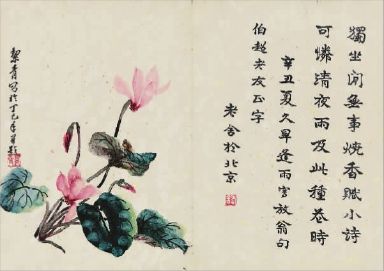 獨坐閒無事燒香賦小詩
可憐清夜雨及此種花時
辛丑夏久旱逢雨書放翁句
伯趙老友正字
老舍於北京
絜青寫於丁巳年並題